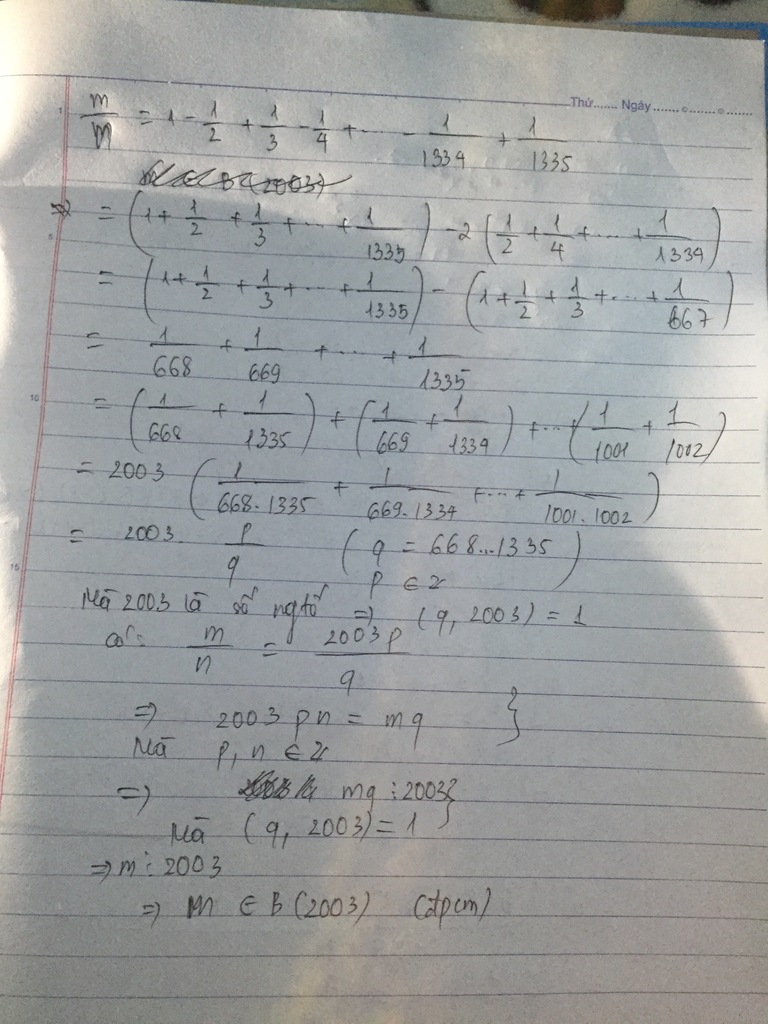 Thứ....... Ngày.......
m/n = 1 - 1/2 + 1/3 - 1/4 + ... - 1/1334 + 1/1335
B (2003)
=> = (1 + 1/2 + 1/3 + ... + 1/1335) - 2 (1/2 + 1/4 + ... + 1/1334)
= (1 + 1/2 + 1/3 + ... + 1/1335) - (1 + 1/2 + 1/3 + ... + 1/667)
= 1/668 + 1/669 + ... + 1/1335
= (1/668 + 1/1335) + (1/669 + 1/1334) + ... (1/1001 + 1/1002)
= 2003 (1/668.1335 + 1/669.1334 + ... + 1/1001.1002)
= 2003. p/q (q = 668...1335
p ∈ Z)
Mà 2003 là số ng tố => (q, 2003) = 1
có: m/n = 2003p/q
=> 2003 pn = mq }
Mà p, n ∈ Z
=> mq ⋮ 2003 }
Mà (q, 2003) = 1
=> m ⋮ 2003
=> m ∈ B (2003) (đpcm)